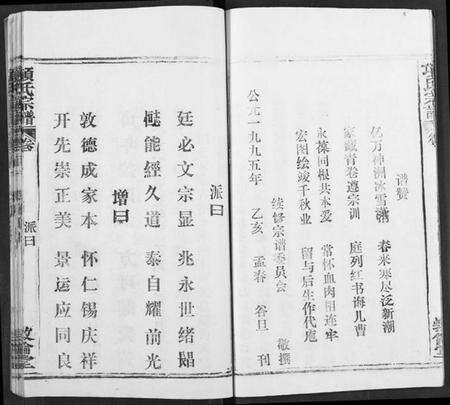 谱赞
亿万神州冰雪消 春来寒尽泛新潮
家藏青卷遵宗训 庭列红书诲儿曹
永葆同根共本爱 常怀血肉相连牢
宏图绘竣千秋业 留与后生作代庖
续修宗谱委员会 敬撰
公元一九九五年 乙亥 孟春 谷旦 刊
派曰
廷必文宗显 兆永世绪
能经久道 泰自耀前光
增曰
敦德成家本 怀仁锡庆祥
开先崇正美 景运应同良
項氏宗譜 卷
派曰
敦倫堂